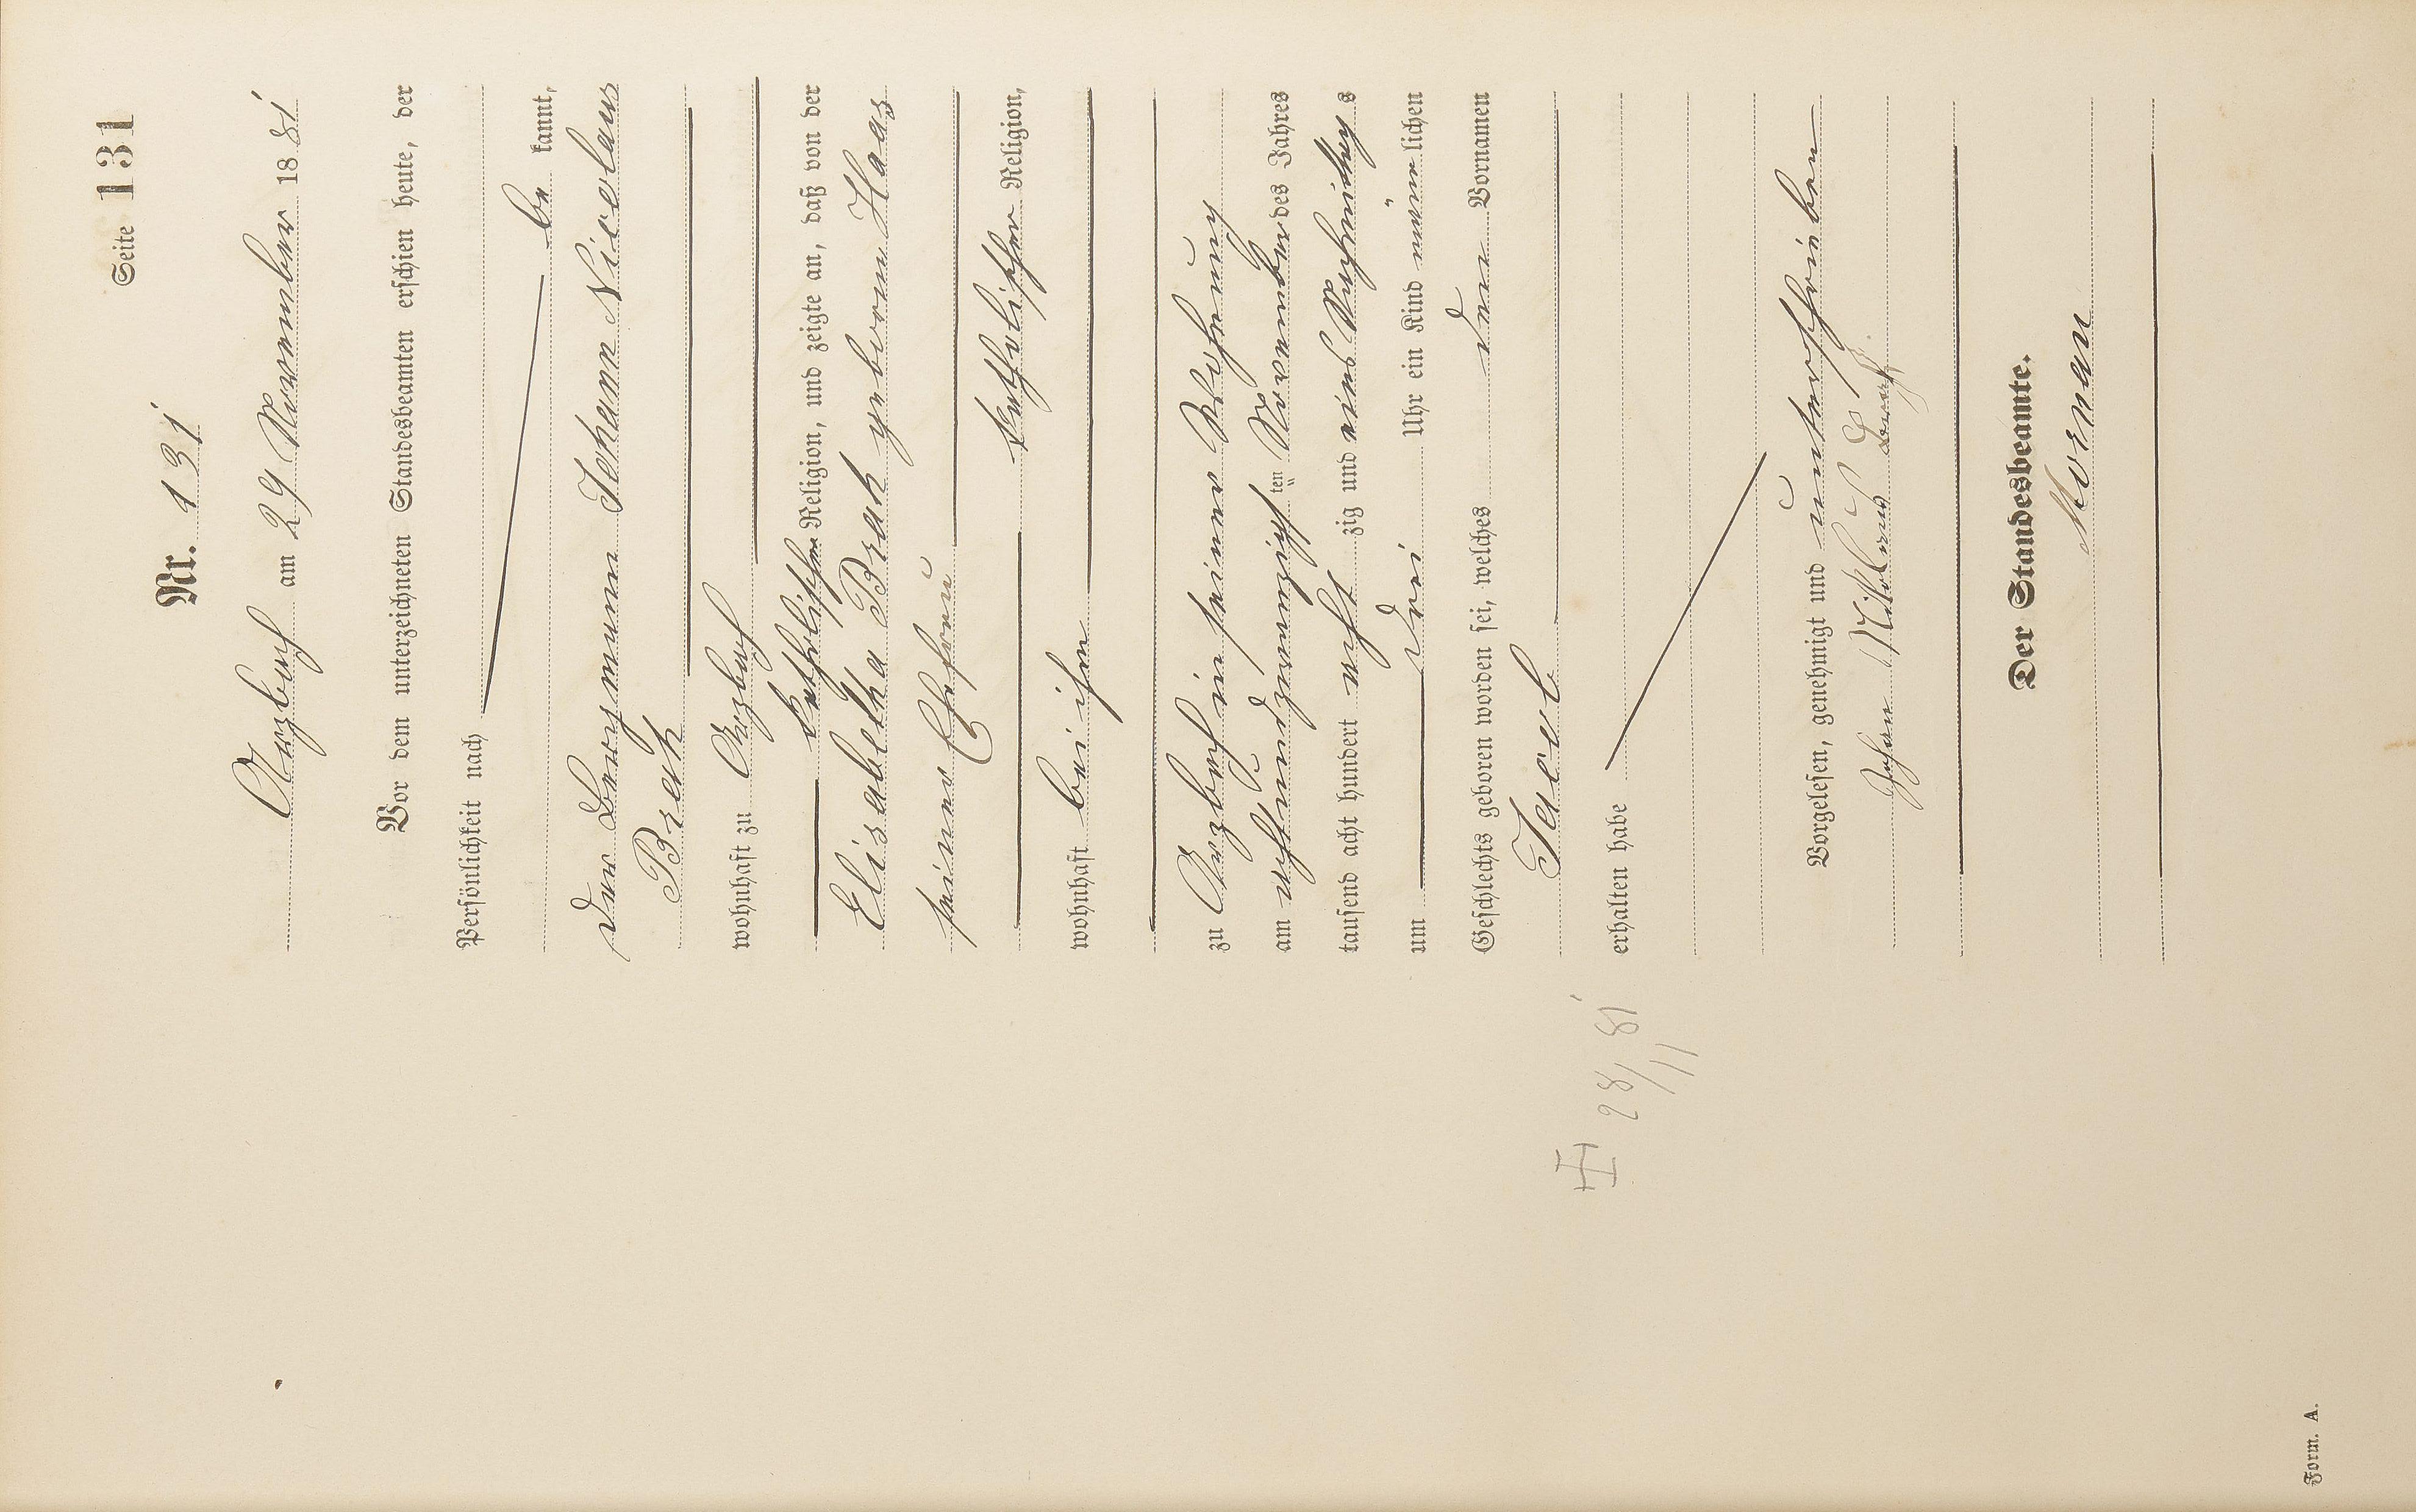 Seite 131
Nr. 131
Arzbach am 29 November 1881
Vor dem unterzeichneten Standesbeamten erschien heute, der
Persönlichkeit nach
be kannt,
der Bergmann Johann Nicolaus
Brak
wohnhaft zu Arzbach
katholischer Religion, und zeigte an, daß von der
Elisabetha Brak geborene Haas
seiner Ehefrau
katholischer Religion,
wohnhaft bei ihm
zu Arzbach in seiner Wohnung
am achtundzwanzigsten November des Jahres
tausend acht hundert acht zig und eins Nachmittags
um drei Uhr ein Kind männlichen
Geschlechts geboren worden sei, welches den Vornamen
Jacob
erhalten habe
✝ 28/11 81
Vorgelesen, genehmigt und unterschrieben
Johan Nikolaus
Der Standesbeamte.
Form. A.